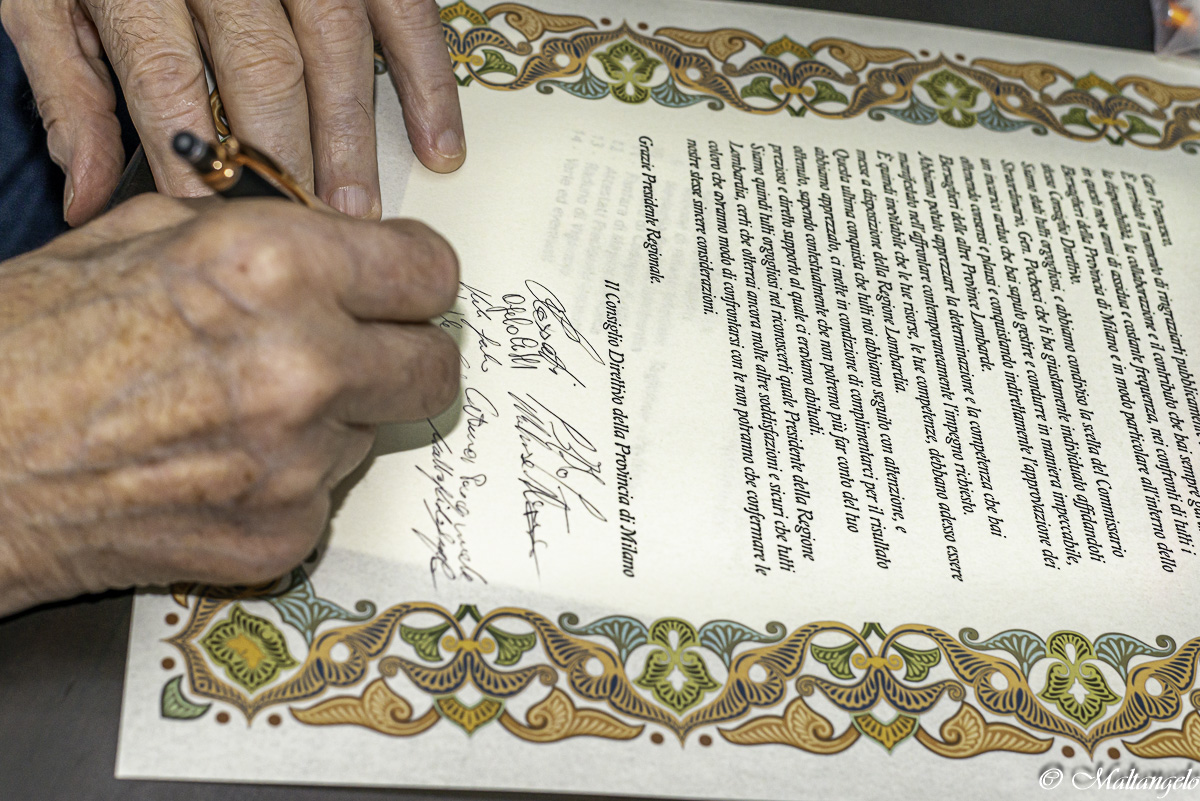 Caro Francesco,
E' arrivato il momento di ringraziarti pubblicamente
la disponibilità, la collaborazione e il contributo che hai sempre
in questi nove anni di assidua e costante frequenza, nei confronti di tutti i
Bersaglieri della Provincia di Milano e in modo particolare all'interno dello
stesso Consiglio Direttivo.
Siamo stati tutti orgogliosi, e abbiamo condiviso la scelta del Commissario
Straordinario, Gen. Pochesci che ti ha giustamente individuato affidandoti
un incarico arduo che hai saputo gestire e condurre in maniera impeccabile,
ottenendo consensi e plausi e conquistando indirettamente l'approvazione dei
Bersaglieri delle altre Province Lombarde.
Abbiamo potuto apprezzare la determinazione e la competenza che hai
manifestato nell'affrontare contemporaneamente l'impegno richiesto.
E quindi inevitabile che le tue risorse, le tue competenze, debbano adesso essere
messe a disposizione della Regione Lombardia.
Questa ultima conquista che tutti noi abbiamo seguito con attenzione, e
abbiamo apprezzato, ci mette in condizione di complimentarci per il risultato
ottenuto, sapendo contestualmente che non potremo più far conto del tuo
prezioso e diretto supporto al quale ci eravamo abituati.
Siamo quindi tutti orgogliosi nel riconoscerti quale Presidente della Regione
Lombardia, certi che otterrai ancora molte altre soddisfazioni e sicuri che tutti
coloro che avranno modo di confrontarsi con te non potranno che confermare le
nostre stesse sincere considerazioni.
Grazie Presidente Regionale.
Il Consiglio Direttivo della Provincia di Milano
© Maltangelo